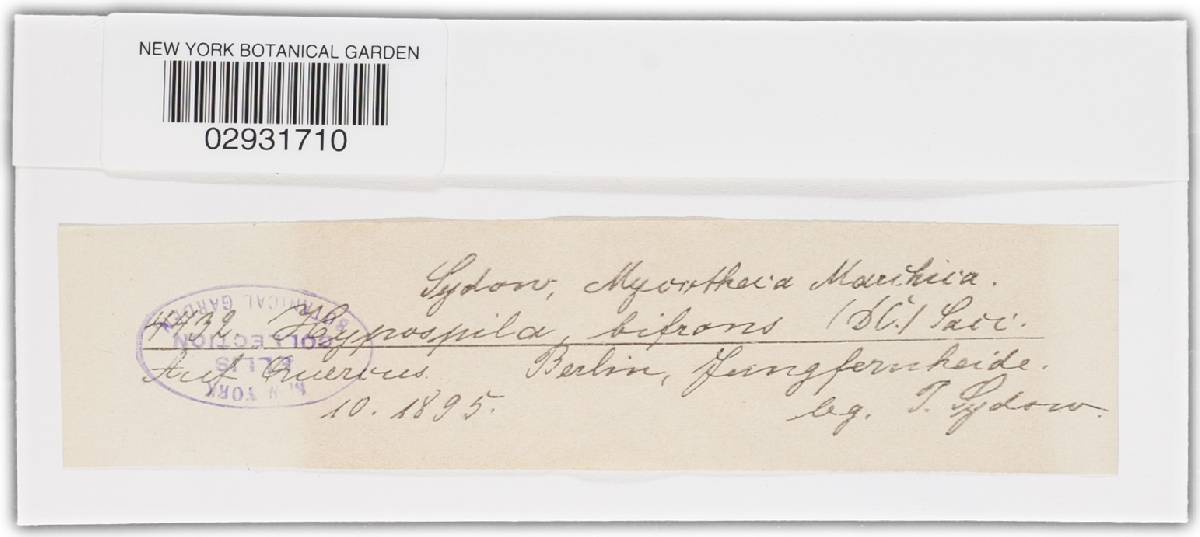 NEW YORK BOTANICAL GARDEN
02931710
Sydow, Mycotheca Marchica.
4432. Hypospila bifrons (DC.) Sacc.
Auf Quercus. Berlin, Jungfernheide.
10. 1895. leg. P. Sydow.
NEW YORK
ELLIS
COLLECTION
BOTANICAL GARDEN